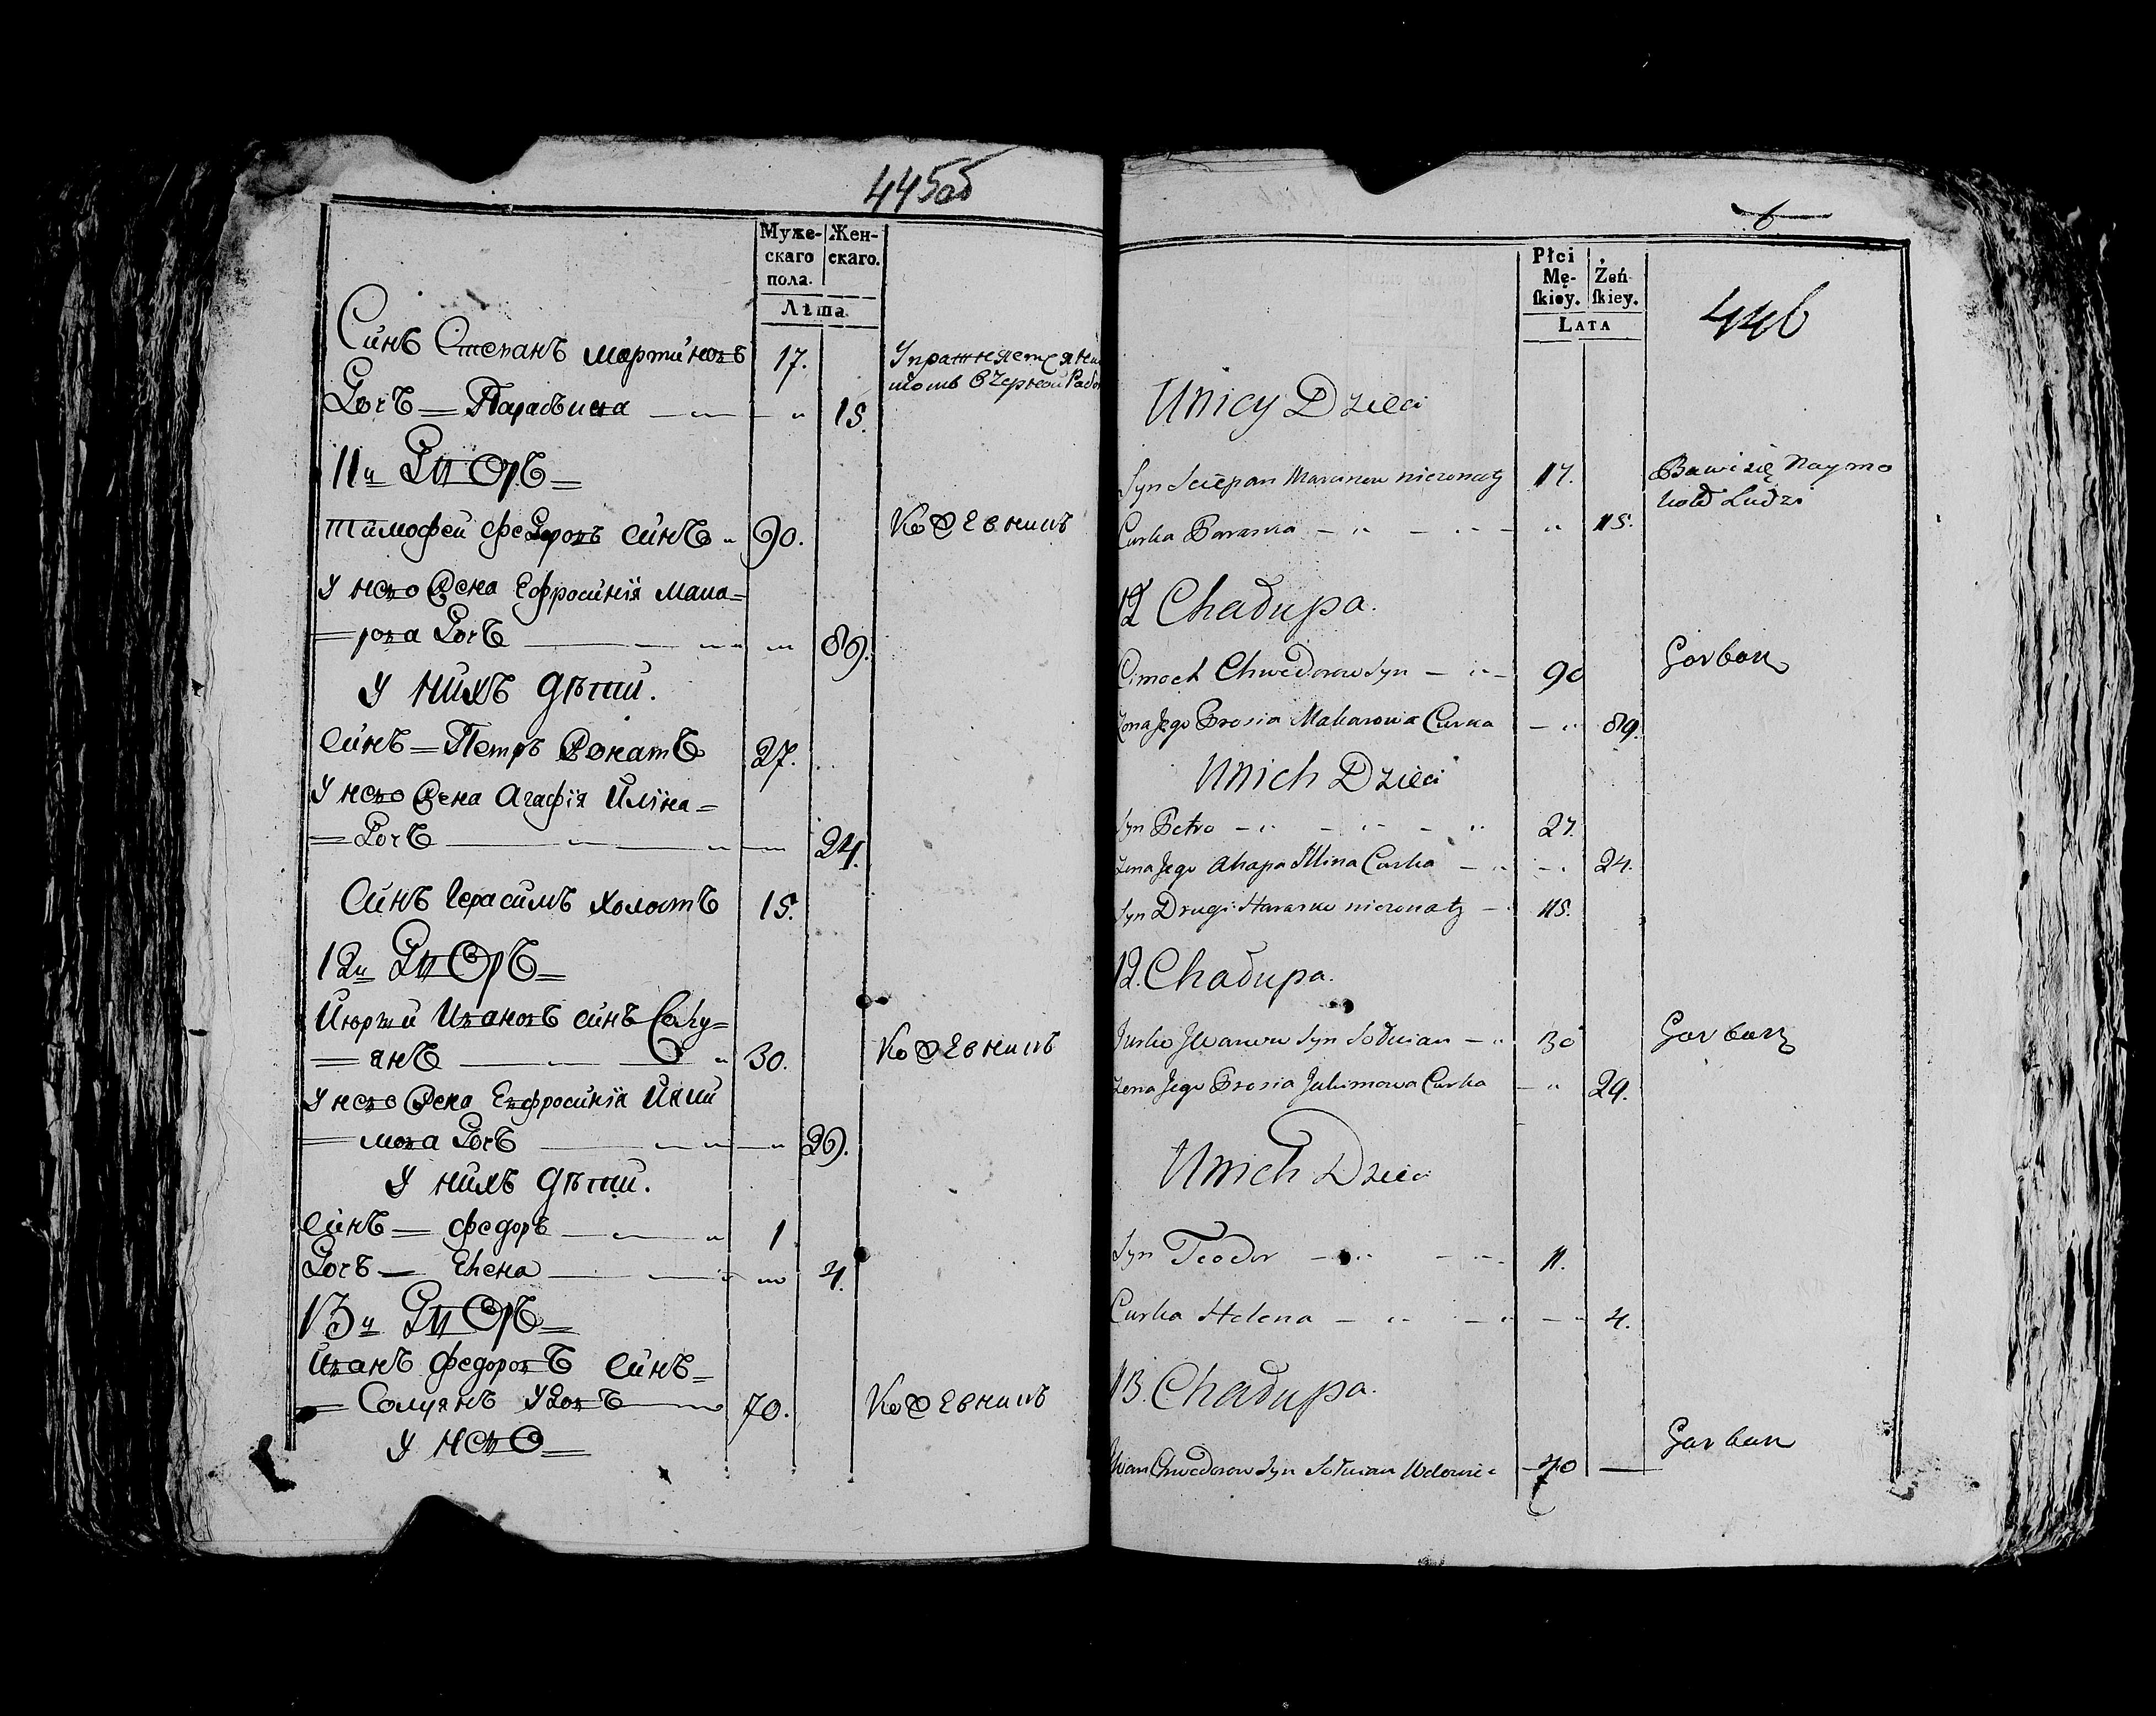 445об
Муже-
скаго
пола.
Жен-
скаго.
Лѣта.
Синъ Степанъ мартиновъ 17.
Упражняется
Дочь — Парасъпиа — " — " 15.
11й Дворъ —
Тимофей федоровъ синъ " 90.
Кожевникъ
У него жена Ефросиния мака=
=рова Дочъ — " — " " 89.
У нихъ дѣти.
синъ — Петръ женатъ 27.
У него жена Агафія Илiна=
=Дочъ — " — " — 24.
Синъ Герасимъ холостъ 15.
12й Дворъ —
Июрий Ивановъ синъ Солу=
=янъ — " — " 30.
Кожевникъ
У него жена Евфросиния Иаки
=мова Дочъ — " " " 29.
У нихъ дѣти.
синъ — федоръ — " — " 1
Дочъ — Елена — " — " " 4.
13й Дворъ —
Иванъ федоровъ синъ=
=Солуянъ Удовъ — " 70.
Кожевникъ
У него —
6
446
Płci
Mę-
skiey.
Żeń-
skiey.
LATA
Unicy Dzieci
Syn Sciepan Marcinow niezonaty 17.
Bawi się Naymo
Curka Paraska — " — " — " 15.
Ludzi
12 Chadupa.
Cimoch Chwedorow Syn — " — 90
Garbarz
Zona Jego Prosia Makarowa Curka — " 89.
Unich Dzieci
Syn Petro — " — " — " 27.
Zona Jego Ahapa Illina Curka — " — " 24.
Syn Drugi Harasko niezonaty — 15.
12. Chadupa.
Jurko Jwanow Syn Sołuian — " 30
Garbarz
Zona Jego Prosia Jakimowa Curka — " 29.
Unich Dzieci
Syn Teodor — " — " 1.
Curka Helena — " — " — " 4.
13. Chadupa.
Garbarz
Jwan Chwedorow Syn Sołuian Wdowiec — 70 —